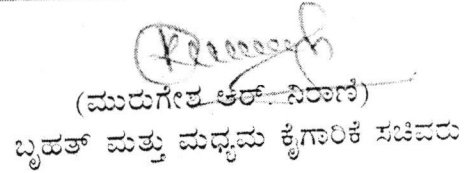 (ಮುರುಗೇಶ ಆರ್. ನಿರಾಣಿ)
ಬೃಹತ್ ಮತ್ತು ಮಧ್ಯಮ ಕೈಗಾರಿಕೆ ಸಚಿವರು